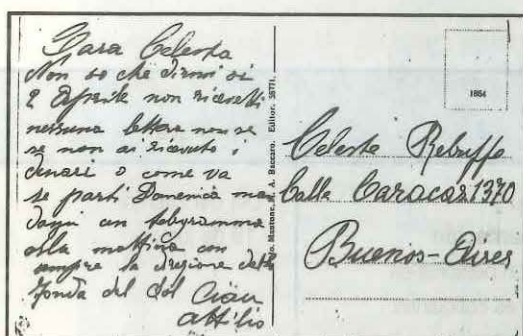 Cara Celesta
Non so che dirmi si
2 Aprile non ricevetti
nessuna lettera non se
se non ai ricevuto i
denari o come va
se parti Domenica
un telegramma
alla mattina con
sempre la direzione
Fonda del Sol Ciau
Attilio
M. A. Baccaro. Editor. 38771.
1864
Celesta Rebuffo
Calle Caracas 1370
Buenos-Aires